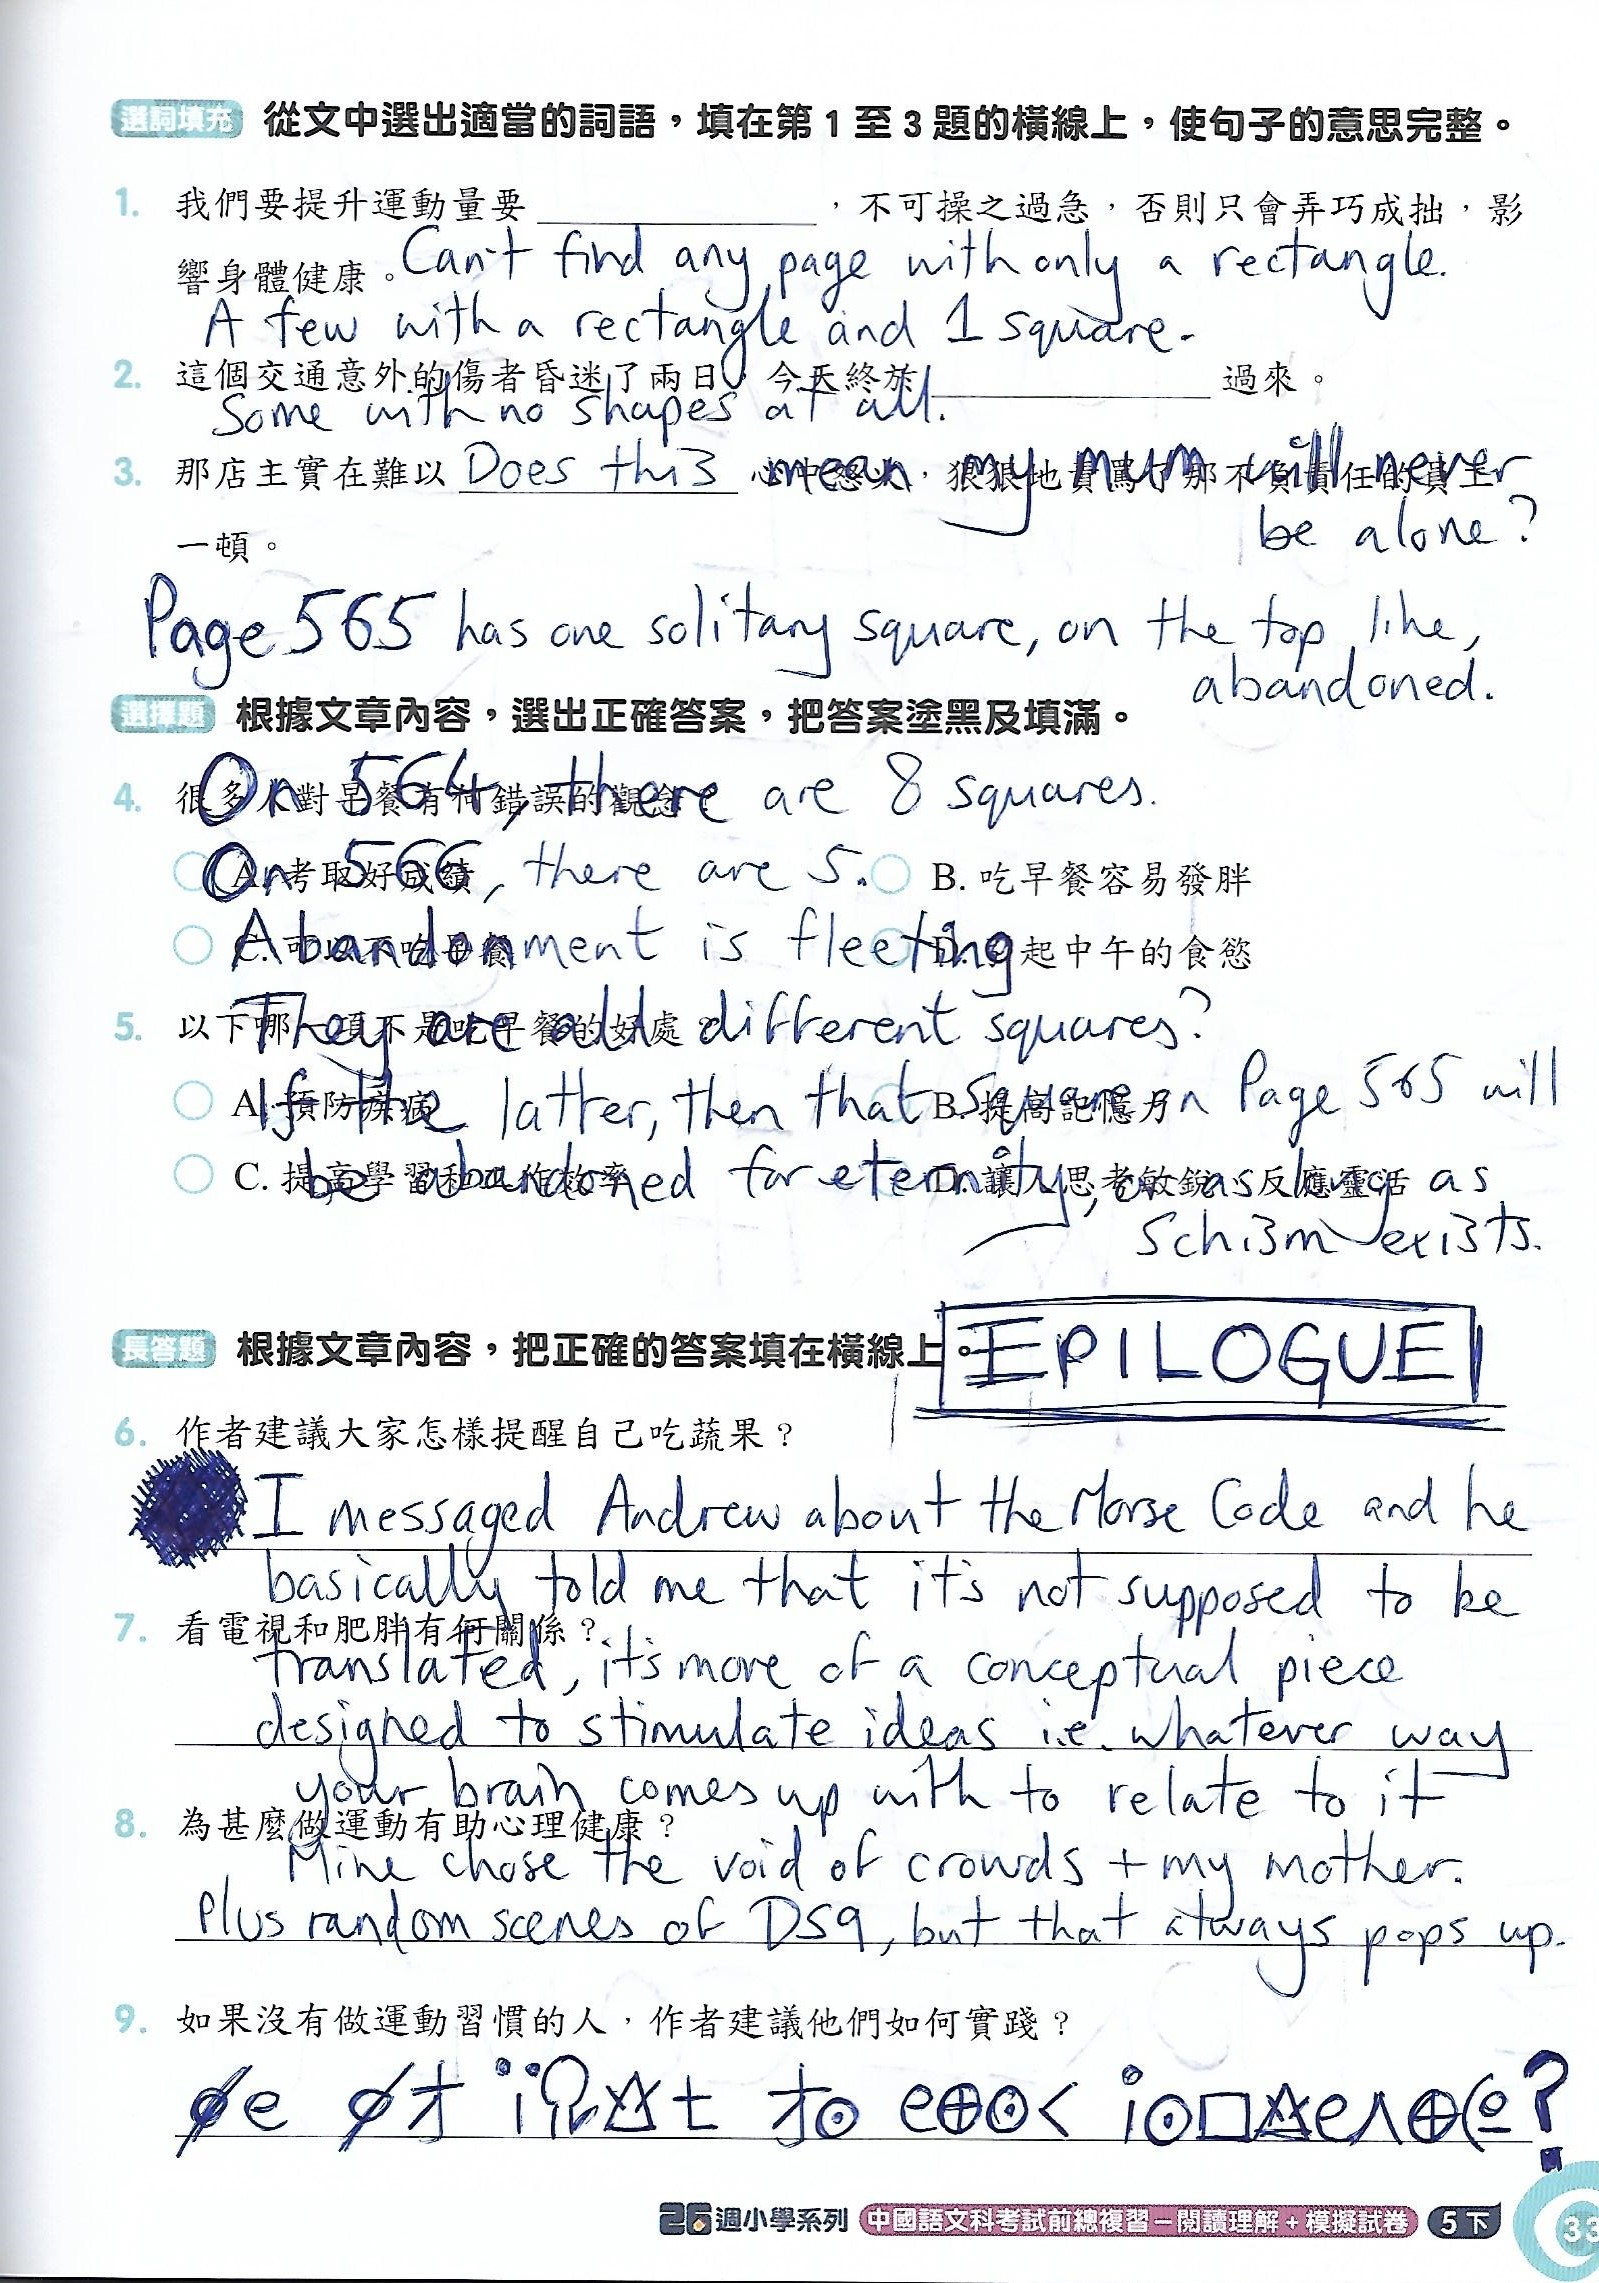 選詞填充 從文中選出適當的詞語，填在第1至3題的橫線上，使句子的意思完整。
1. 我們要提升運動量要 ，不可操之過急，否則只會弄巧成拙，影
響身體健康。 Can't find any page with only a rectangle.
A few with a rectangle and 1 square.
2. 這個交通意外的傷者昏迷了兩日，今天終於 過來。
Some with no shapes at all.
3. 那店主實在難以 心中怒火，狠狠地責罵了那不負責任的員工
Does this mean my mum will never
be alone?
一頓。
Page 565 has one solitary square, on the top like,
abandoned.
選擇題 根據文章內容，選出正確答案，把答案塗黑及填滿。
4. 很多人對早餐有何錯誤的觀念？
On 564, there are 8 squares.
A. 考取好成績 B. 吃早餐容易發胖
On 566, there are 5.
C. 可以不吃早餐 D. 起中午的食慾
Abandonment is fleeting
5. 以下哪一項不是吃早餐的好處？
They are all different squares?
A. 預防疾病 B. 提高記憶力
If the latter, then that square on Page 565 will
C. 提高學習和工作效率 D. 讓人思考敏銳、反應靈活
be abandoned for eternity, or as long as
Schism exists.
長答題 根據文章內容，把正確的答案填在橫線上。
EPILOGUE
6. 作者建議大家怎樣提醒自己吃蔬果？
I messaged Andrew about the Morse Code and he
basically told me that it's not supposed to be
7. 看電視和肥胖有何關係？
translated, it's more of a conceptual piece
designed to stimulate ideas i.e. whatever way
your brain comes up with to relate to it
8. 為甚麼做運動有助心理健康？
Mine chose the void of crowds + my mother.
Plus random scenes of DS9, but that always pops up.
9. 如果沒有做運動習慣的人，作者建議他們如何實踐？
26週小學系列 中國語文科考試前總複習－閱讀理解＋模擬試卷 5下 33